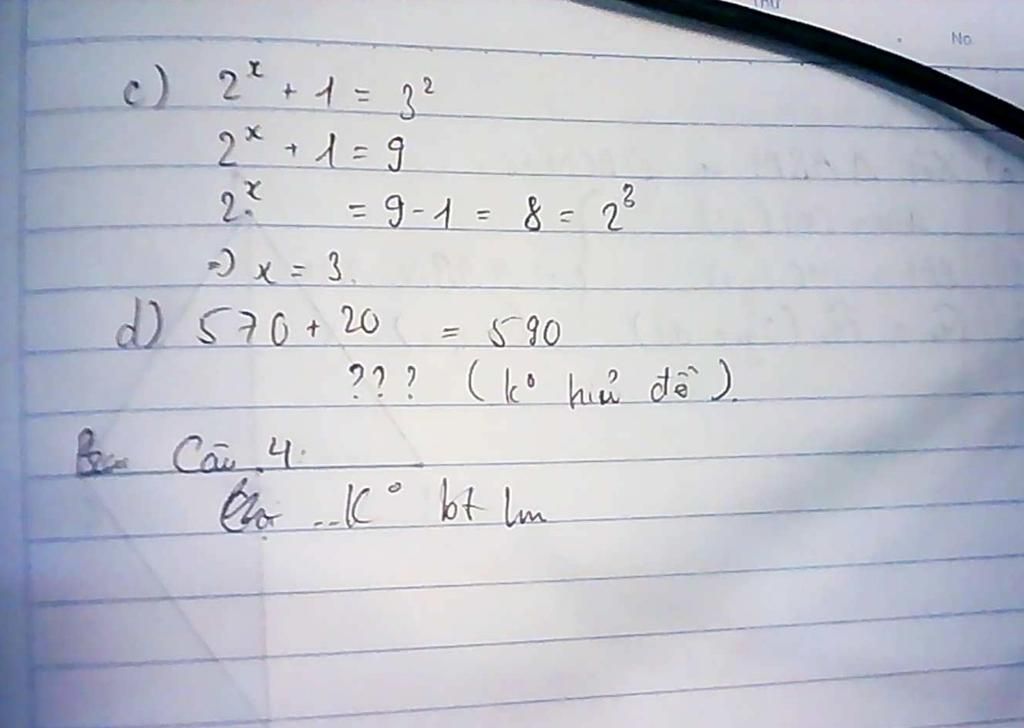 No
c) 2^x + 1 = 3^2
2^x + 1 = 9
2^x = 9 - 1 = 8 = 2^3
=> x = 3.
d) 570 + 20 = 590
??? (k° hiủ đề).
Câu 4.
..K° bt lm